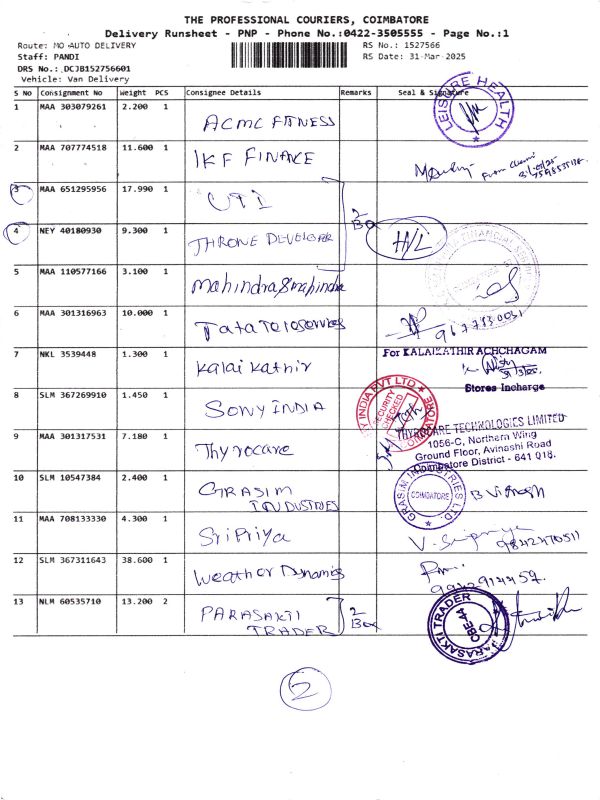 THE PROFESSIONAL COURIERS, COIMBATORE
Delivery Runsheet - PNP - Phone No.:0422-3505555 - Page No.:1
Route: MO AUTO DELIVERY
RS No.: 1527566
Staff: PANDI
RS Date: 31-Mar-2025
DRS No.: DCJB152756601
Vehicle: Van Delivery
S No Consignment No Weight PCS Consignee Details Remarks Seal & Signature
LEISURE HEALTH
1 MAA 303079261 2.200 1 ACMC FITNESS
2 MAA 707774518 11.600 1 IKF FINANCE
3 MAA 651295956 17.990 1 UTI
2 Box
4 NEY 40180930 9.300 1 THRONE DEVELOPER H/L
5 MAA 110577166 3.100 1 Mahindra & mahindra
6 MAA 301316963 10.000 1 Tata Teleservices
7 NKL 3539448 1.300 1 Kalai Kathir
For KALAIKATHIR ACHCHAGAM
Stores Incharge
8 SLM 367269910 1.450 1 SONY INDIA
SECURITY CHECKED
THYROCARE TECHNOLOGIES LIMITED
1056-C, Northern Wing
Ground Floor, Avinashi Road
Coimbatore District - 641 018.
9 MAA 301317531 7.180 1 Thyrocare
10 SLM 10547384 2.400 1 GRASIM INDUSTRIES
GRASIM INDUSTRIES LTD
COIMBATORE
11 MAA 708133330 4.300 1 Sri Priya
9842470511
12 SLM 367311643 38.600 1 Weather Dynamics
9942914457
13 NLM 60535710 13.200 2 PARASAKTI TRADER
2 Box
PARASAKTI TRADER
CBE-44
2